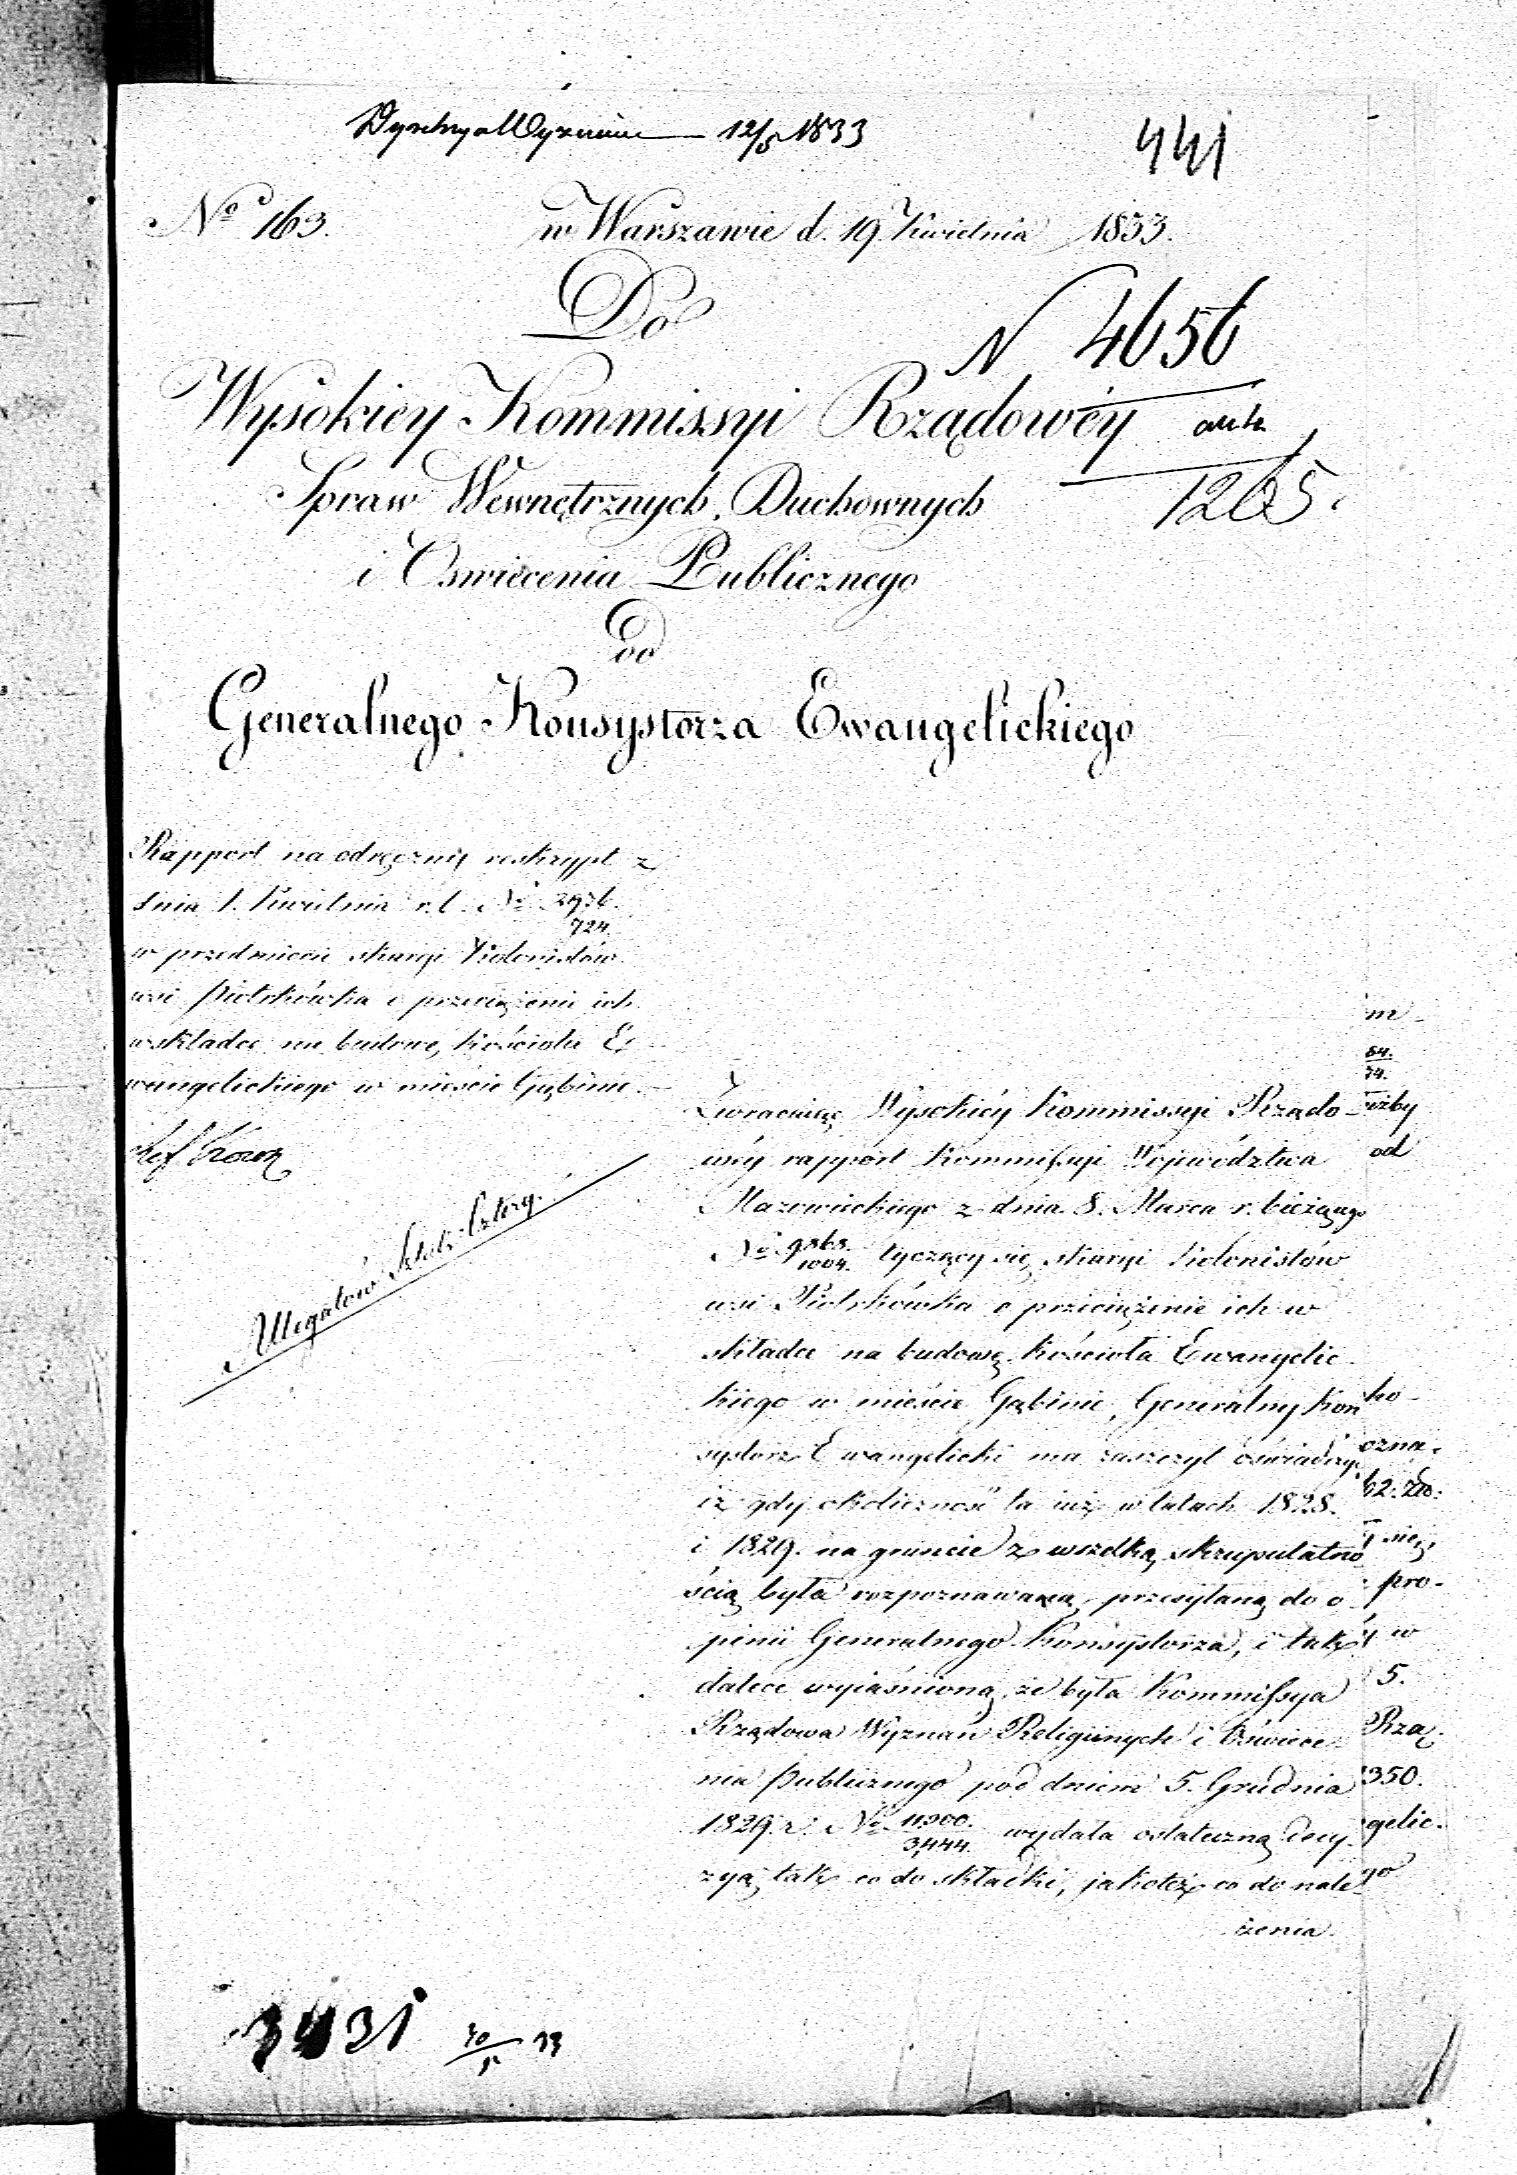 12/5 1833
441
Nº 163. w Warszawie d. 19 Kwietnia 1833.
Do
N 4656
Wysokiey Kommissyi Rządowéy
Spraw Wewnętrznych, Duchownych
1265.
i Oswiecenia Publicznego
Od
Generalnego Konsystorza Ewangelickiego
Rapport na odręczny reskrypt z
dnia 1. Kwietnia r. b. Nº 2976.
724.
w przedmiocie skargi Kolonistów
wsi Piotrkówka o przeciążenie ich
w składce na budowę Kościoła E-
wangelickiego w mieście Gąbinie.
Allegatów Sztuk Cztery.
Zwracaiąc Wysokiéy Kommissyi Rządo-
wéy rapport Kommissyi Województwa
Mazowieckiego z dnia 8. Marca r. bieżącego
Nº 9363.
1004. tyczący się skargi Kolonistów
wsi Piotrkówka o przeciążenie ich w
składce na budowę Kościoła Ewangelic-
kiego w mieście Gąbinie, Generalny Kon
systorz Ewangelicki ma zaszczyt oświadczyć
iż gdy okoliczność ta iuż w latach 1828.
i 1829. na gruncie z wszelką skrupulatno
ścią była rozpoznawaną, przesyłaną do o
pinii Generalnego Konsystorza, i tak
dalece wyiaśnioną, że była Kommissya
Rządowa Wyznań Religiinych i Oświece-
nia Publicznego pod dniem 5. Grudnia
1829. r. Nº 11900.
3,444. wydała ostateczną decy-
zyą, tak co do składki, jakoteż co do nale-
żenia.
m
84.
74.
iżby
od
ko-
ozna-
62. Złp.
się
pro-
w
5.
Rzą-
350.
gelic-
go
3431 30/5 33